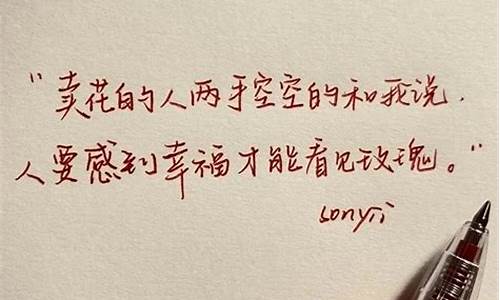 "卖花的人两手空空的和我说.
人要感到幸福才能看见玫瑰。"
sonyii